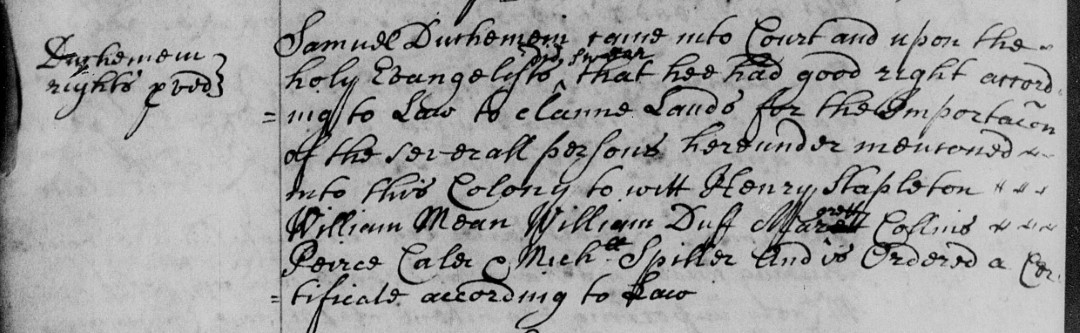 Duchemein
rights pvd
Samuel Duchemein came into Court and upon the
did swear
holy Evangelists that hee had good right accord
=ing to Law to claime Lands for the Importacon
of the severall persons hereunder mentioned
into this Colony to witt Henry Stapleton
William Mean William Duf Margrett Collins
Peirce Caler & Mich:ll Spiller And is Ordered a Cer
=tificate according to Law